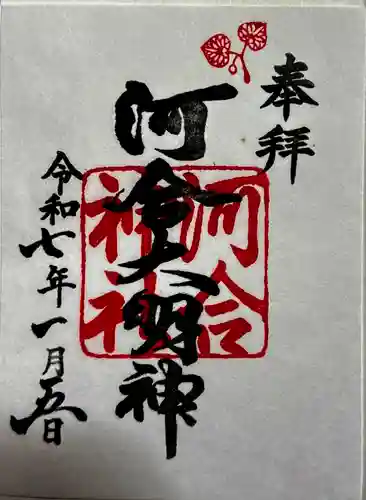 奉拝
河合大明神
河合
神社
令和七年一月五日